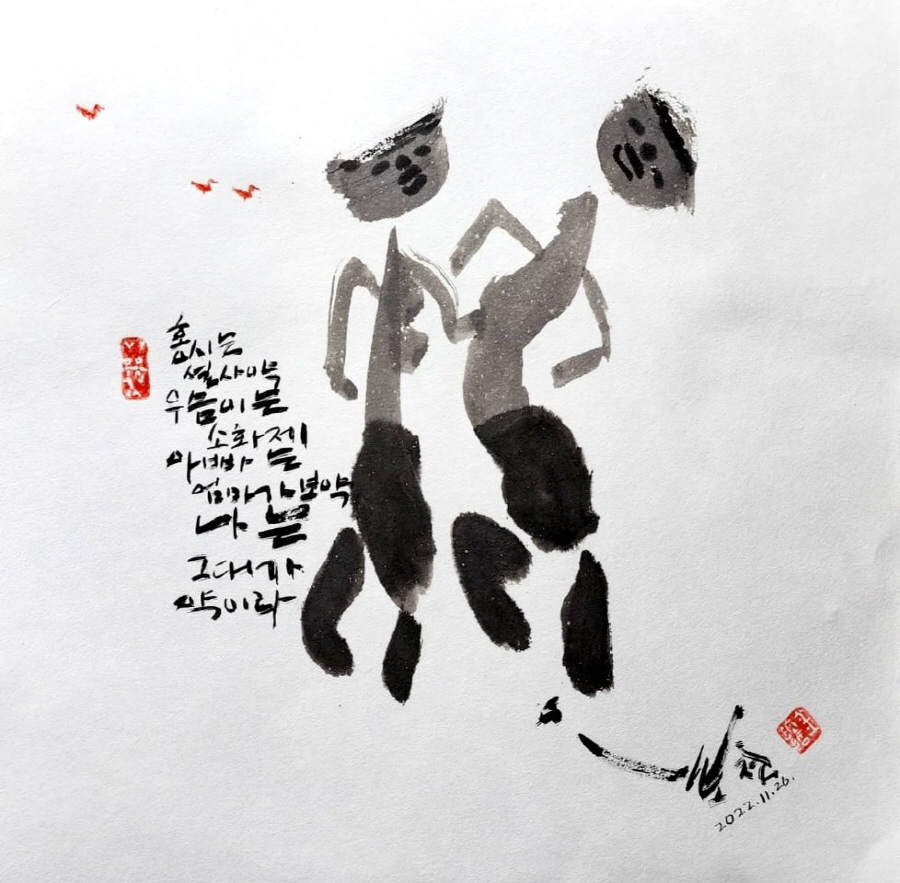 홍시는
설사약
우름이는
소화젤
아빠는
엄마가 보약
나는
그대가
약이라
2022.11.26.